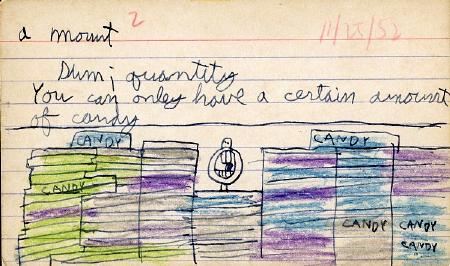 a mount 2 11/25/52
Sum; quantity
You can onley have a certain amount
of candy
CANDY CANDY
CANDY
CANDY CANDY
CANDY